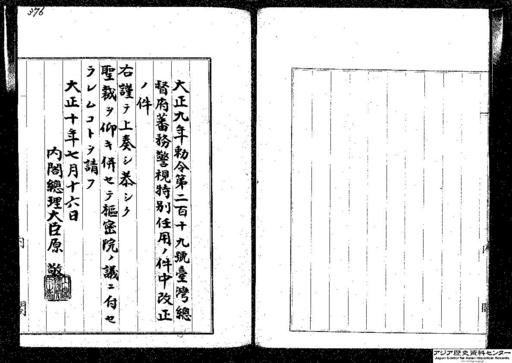 376
大正九年勅令第二百十九號臺灣總
督府蕃務警視特別任用ノ件中改正
ノ件
右謹テ上奏シ恭シク
聖裁ヲ仰キ併セテ樞密院ノ議ニ付セ
ラレムコトヲ請フ
大正十年七月十六日
內閣總理大臣原 敬
內
閣
アジア歴史資料センター
Japan Center for Asian Historical Records